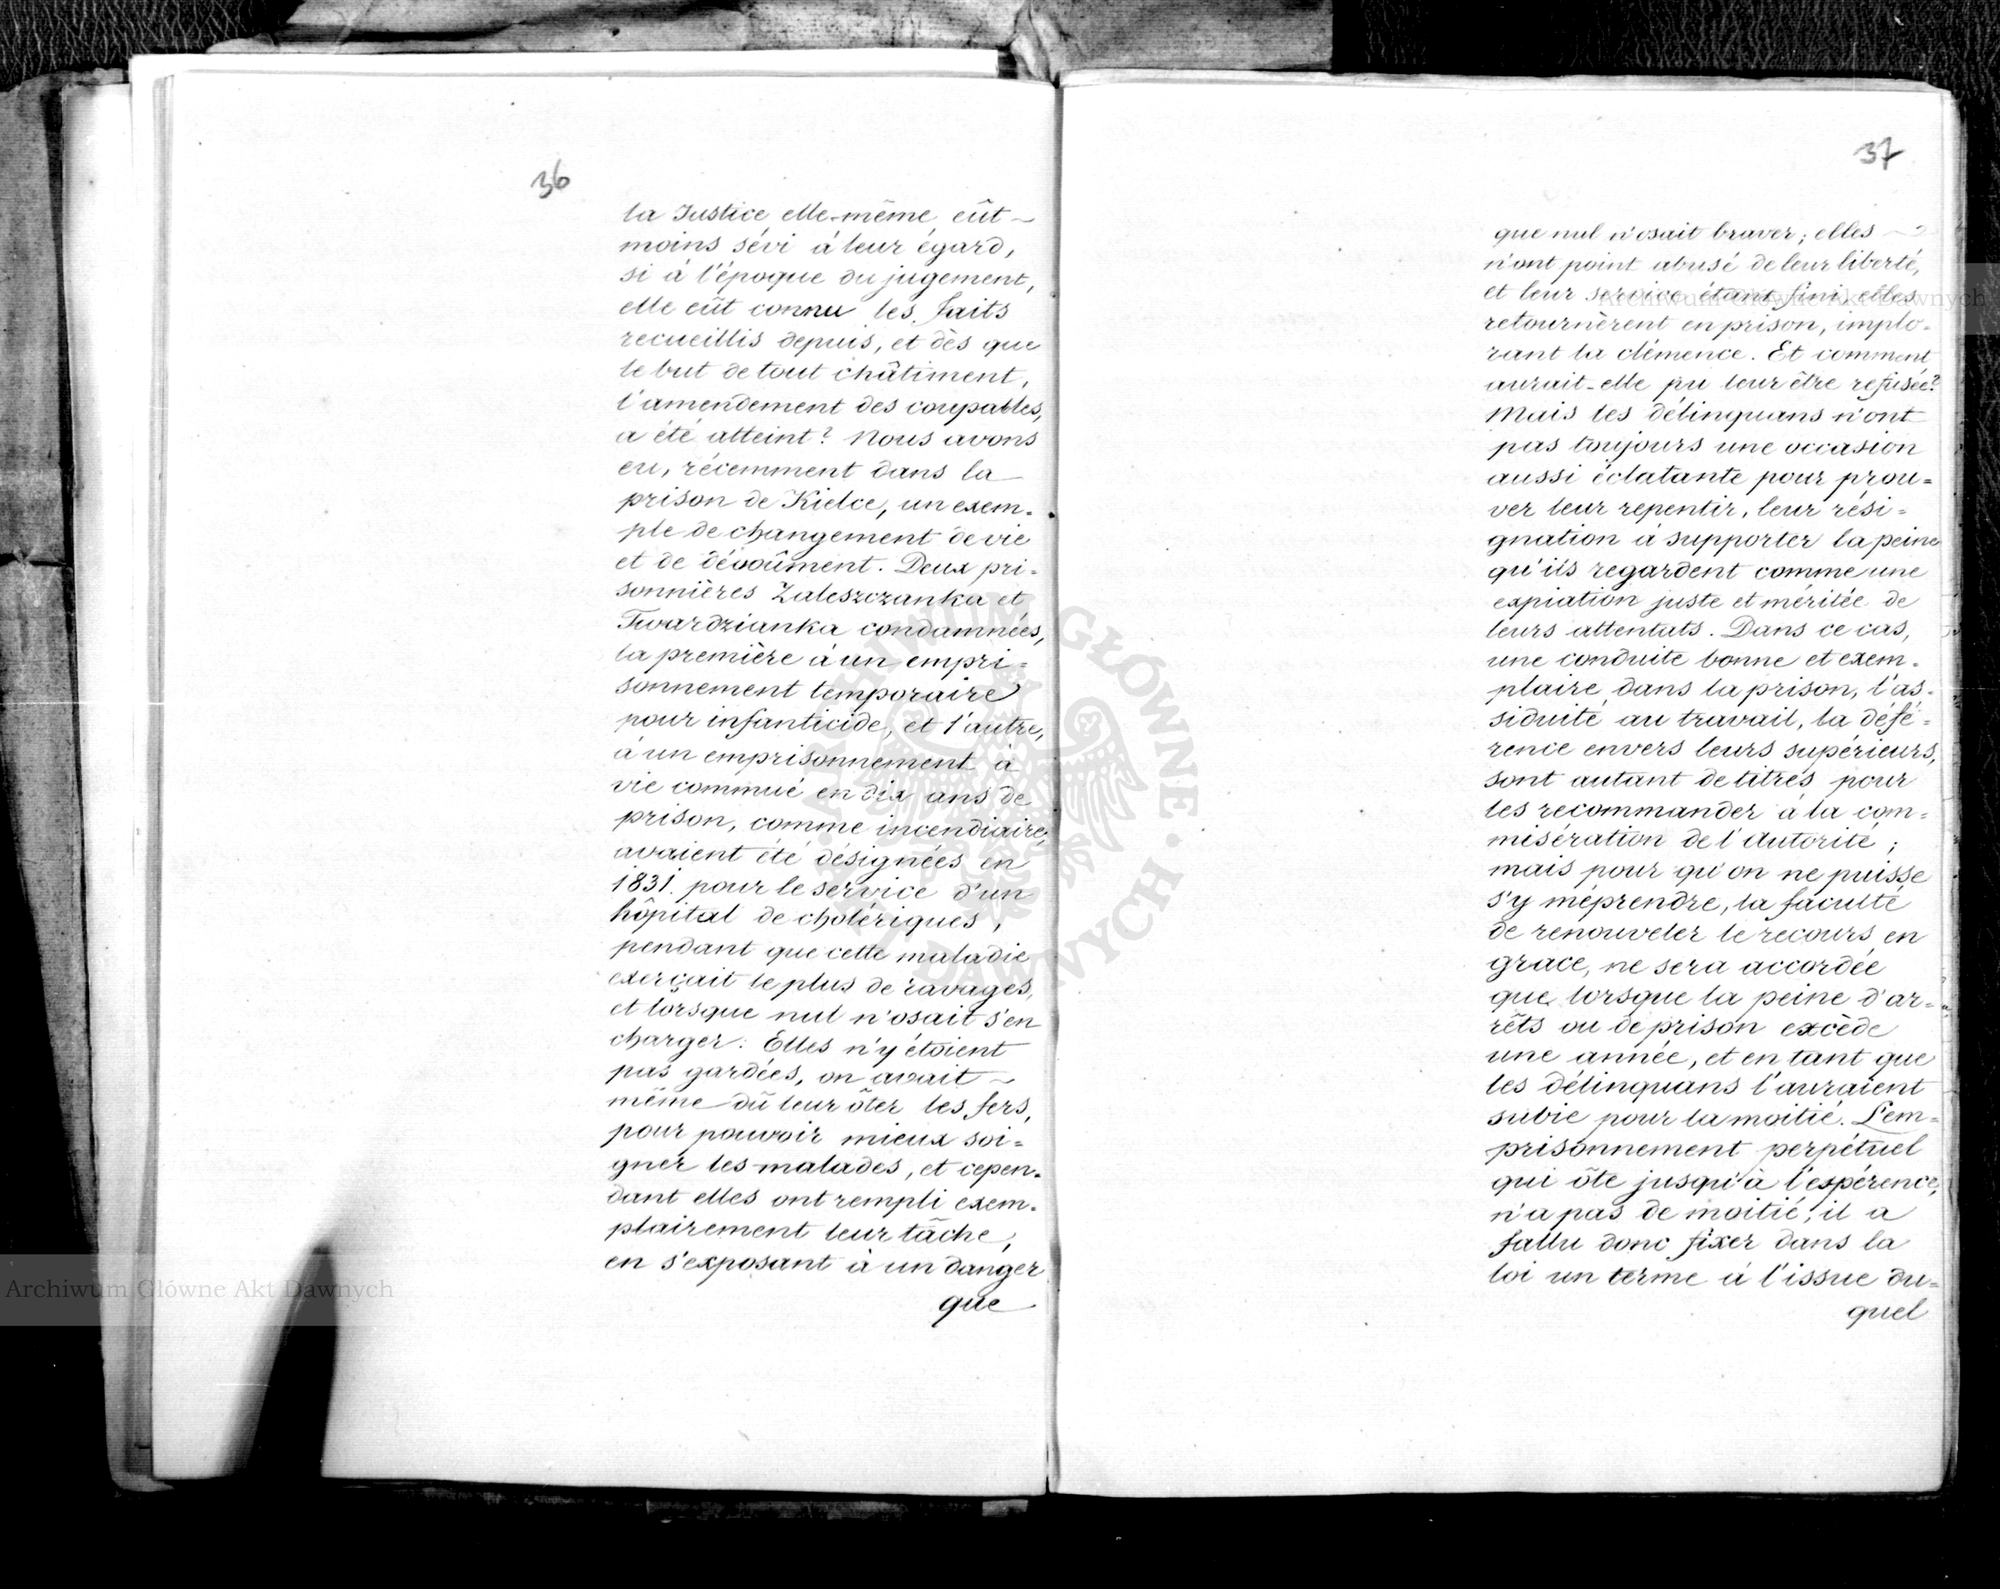 36
la Justice elle-même eût
moins sévi à leur égard,
si à l'époque du jugement,
elle eût connu les faits
recueillis depuis, et dès que
le but de tout châtiment,
l'amendement des coupables,
a été atteint? Nous avons
eu, récemment dans la
prison de Kielce, un exem-
ple de changement de vie
et de dévoûment. Deux pri-
sonnières Zaleszczanka et
Twardzianka condamnées,
la première à un empri-
sonnement temporaire
pour infanticide, et l'autre,
à un emprisonnement à
vie commué en dix ans de
prison, comme incendiaire,
avaient été désignées en
1831. pour le service d'un
hôpital de cholériques,
pendant que cette maladie
exerçait le plus de ravages,
et lorsque nul n'osait s'en
charger. Elles n'y étoient
pas gardées, on avait
même dû leur ôter les fers,
pour pouvoir mieux soi-
gner les malades, et cepen-
dant elles ont rempli exem-
plairement leur tâche,
en s'exposant à un danger
que
37
que nul n'osait braver; elles
n'ont point abusé de leur liberté,
et leur service étant fini elles
retournèrent en prison, implo-
rant la clémence. Et comment
aurait-elle pu leur être refusée?
Mais les délinquans n'ont
pas toujours une occasion
aussi éclatante pour prou-
ver leur repentir, leur rési-
gnation à supporter la peine
qu'ils regardent comme une
expiation juste et méritée de
leurs attentats. Dans ce cas,
une conduite bonne et exem-
plaire dans la prison, l'as-
siduité au travail, la défé-
rence envers leurs supérieurs,
sont autant de titres pour
les recommander à la com-
misération de l'Autorité;
mais pour qu'on ne puisse
s'y méprendre, la faculté
de renouveler le recours en
grace, ne sera accordée
que lorsque la peine d'ar-
rêts ou de prison excède
une année, et en tant que
les délinquans l'auraient
subie pour la moitié. L'em-
prisonnement perpétuel
qui ôte jusqu'à l'espérence,
n'a pas de moitié; il a
fallu donc fixer dans la
loi un terme à l'issue du-
quel
Archiwum Główne Akt Dawnych
Archiwum Główne Akt Dawnych
ARCHIWUM GŁÓWNE · AKT DAWNYCH ·